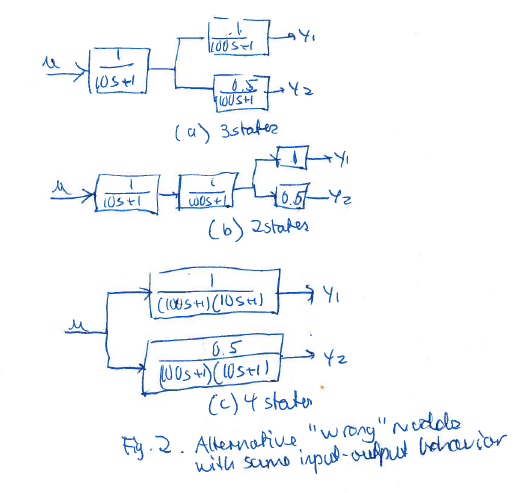 1
100s+1
→ y₁
u
1
10s+1
0.5
100s+1
→ y₂
(a) 3 states
u
1
10s+1
1
100s+1
1
→ y₁
0.5
y₂
(b) 2 states
1
(100s+1)(10s+1)
→ y₁
u
0.5
(100s+1)(10s+1)
→ y₂
(c) 4 states
Fig. 2. Alternative "wrong" models
with same input-output behavior